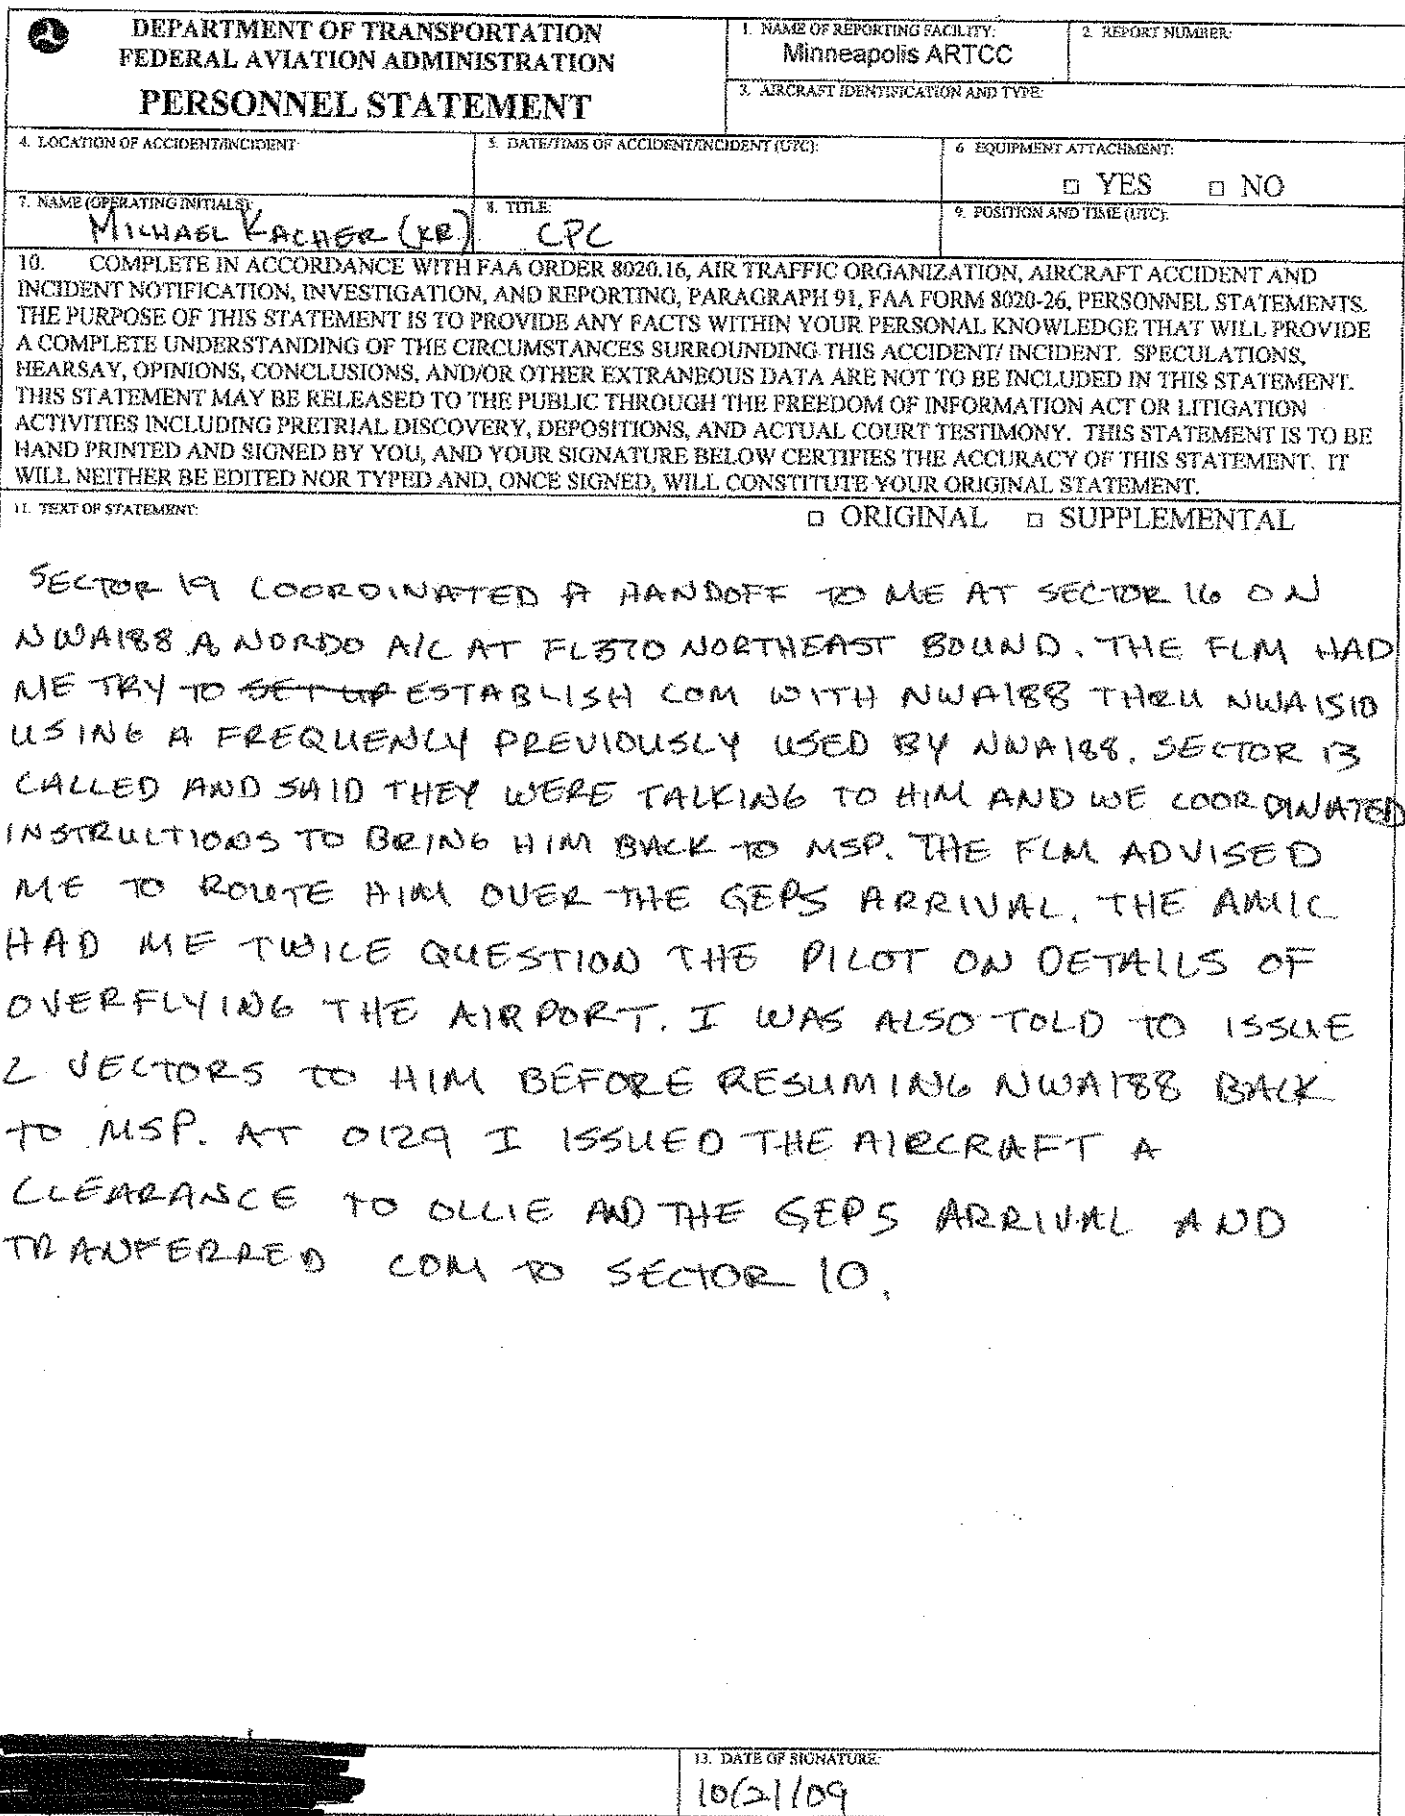 DEPARTMENT OF TRANSPORTATION
FEDERAL AVIATION ADMINISTRATION
PERSONNEL STATEMENT
1. NAME OF REPORTING FACILITY:
Minneapolis ARTCC
2. REPORT NUMBER:
3. AIRCRAFT IDENTIFICATION AND TYPE:
4. LOCATION OF ACCIDENT/INCIDENT:
5. DATE/TIME OF ACCIDENT/INCIDENT (UTC):
6 EQUIPMENT ATTACHMENT:
□ YES □ NO
7. NAME (OPERATING INITIALS):
MICHAEL KACHER (KR)
8. TITLE:
CPC
9. POSITION AND TIME (UTC):
10. COMPLETE IN ACCORDANCE WITH FAA ORDER 8020.16, AIR TRAFFIC ORGANIZATION, AIRCRAFT ACCIDENT AND
INCIDENT NOTIFICATION, INVESTIGATION, AND REPORTING, PARAGRAPH 91, FAA FORM 8020-26, PERSONNEL STATEMENTS.
THE PURPOSE OF THIS STATEMENT IS TO PROVIDE ANY FACTS WITHIN YOUR PERSONAL KNOWLEDGE THAT WILL PROVIDE
A COMPLETE UNDERSTANDING OF THE CIRCUMSTANCES SURROUNDING THIS ACCIDENT/ INCIDENT. SPECULATIONS,
HEARSAY, OPINIONS, CONCLUSIONS, AND/OR OTHER EXTRANEOUS DATA ARE NOT TO BE INCLUDED IN THIS STATEMENT.
THIS STATEMENT MAY BE RELEASED TO THE PUBLIC THROUGH THE FREEDOM OF INFORMATION ACT OR LITIGATION
ACTIVITIES INCLUDING PRETRIAL DISCOVERY, DEPOSITIONS, AND ACTUAL COURT TESTIMONY. THIS STATEMENT IS TO BE
HAND PRINTED AND SIGNED BY YOU, AND YOUR SIGNATURE BELOW CERTIFIES THE ACCURACY OF THIS STATEMENT. IT
WILL NEITHER BE EDITED NOR TYPED AND, ONCE SIGNED, WILL CONSTITUTE YOUR ORIGINAL STATEMENT.
11. TEXT OF STATEMENT:
□ ORIGINAL □ SUPPLEMENTAL
SECTOR 19 COORDINATED A HANDOFF TO ME AT SECTOR 16 ON
NWA188 A NORDO A/C AT FL370 NORTHEAST BOUND. THE FLM HAD
ME TRY TO SET UP ESTABLISH COM WITH NWA188 THRU NWA1510
USING A FREQUENCY PREVIOUSLY USED BY NWA188. SECTOR 13
CALLED AND SAID THEY WERE TALKING TO HIM AND WE COORDINATED
INSTRUCTIONS TO BRING HIM BACK TO MSP. THE FLM ADVISED
ME TO ROUTE HIM OVER THE GEP5 ARRIVAL. THE AMIC
HAD ME TWICE QUESTION THE PILOT ON DETAILS OF
OVERFLYING THE AIRPORT. I WAS ALSO TOLD TO ISSUE
2 VECTORS TO HIM BEFORE RESUMING NWA188 BACK
TO MSP. AT 0129 I ISSUED THE AIRCRAFT A
CLEARANCE TO OLLIE AND THE GEP5 ARRIVAL AND
TRANFERRED COM TO SECTOR 10.
13. DATE OF SIGNATURE:
10/21/09